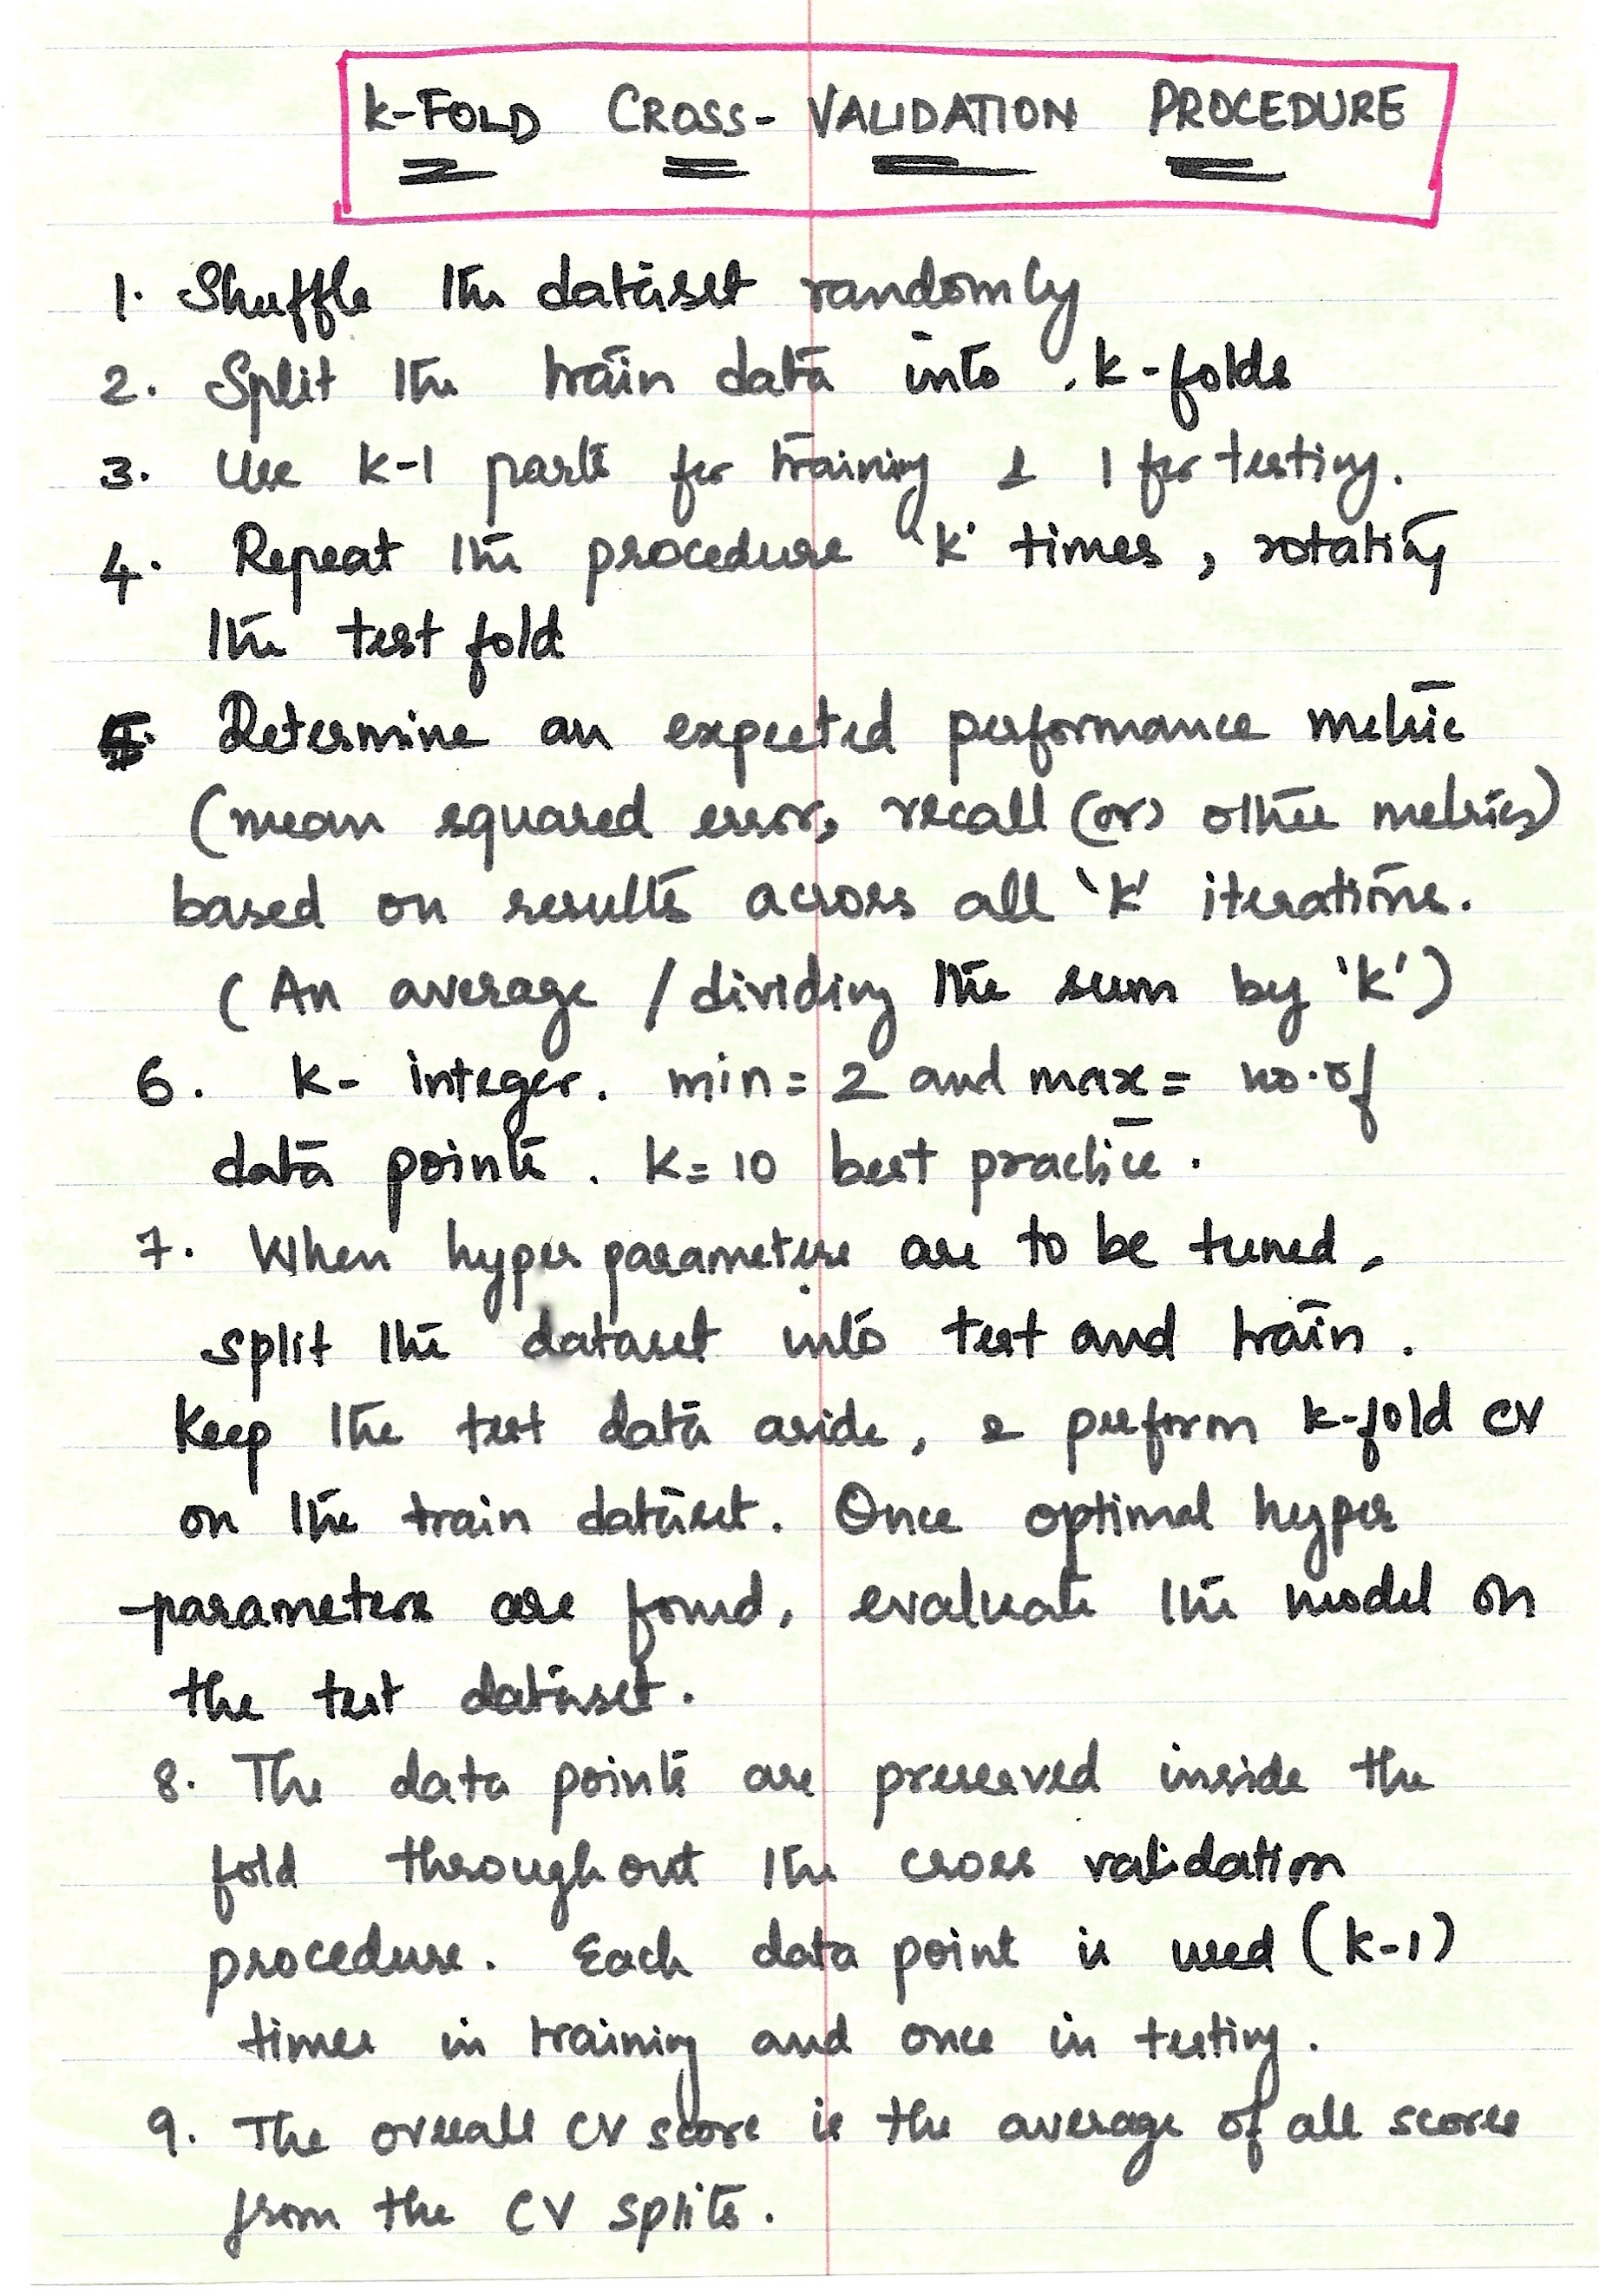 K-FOLD CROSS-VALIDATION PROCEDURE
1. Shuffle the dataset randomly
2. Split the train data into k-folds
3. Use k-1 parts for training & 1 for testing.
4. Repeat the procedure 'k' times, rotating
the test fold
5. Determine an expected performance metric
(mean squared error, recall (or) other metrics)
based on results across all 'k' iterations.
(An average / dividing the sum by 'k')
6. K- integer. min = 2 and max = no. of
data points. K = 10 best practice.
7. When hyper parameters are to be tuned,
split the dataset into test and train.
Keep the test data aside, & perform k-fold CV
on the train dataset. Once optimal hyper
-parameters are found, evaluate the model on
the test dataset.
8. The data points are preserved inside the
fold throughout the cross validation
procedure. Each data point is used (k-1)
times in training and once in testing.
9. The overall CV score is the average of all scores
from the CV splits.